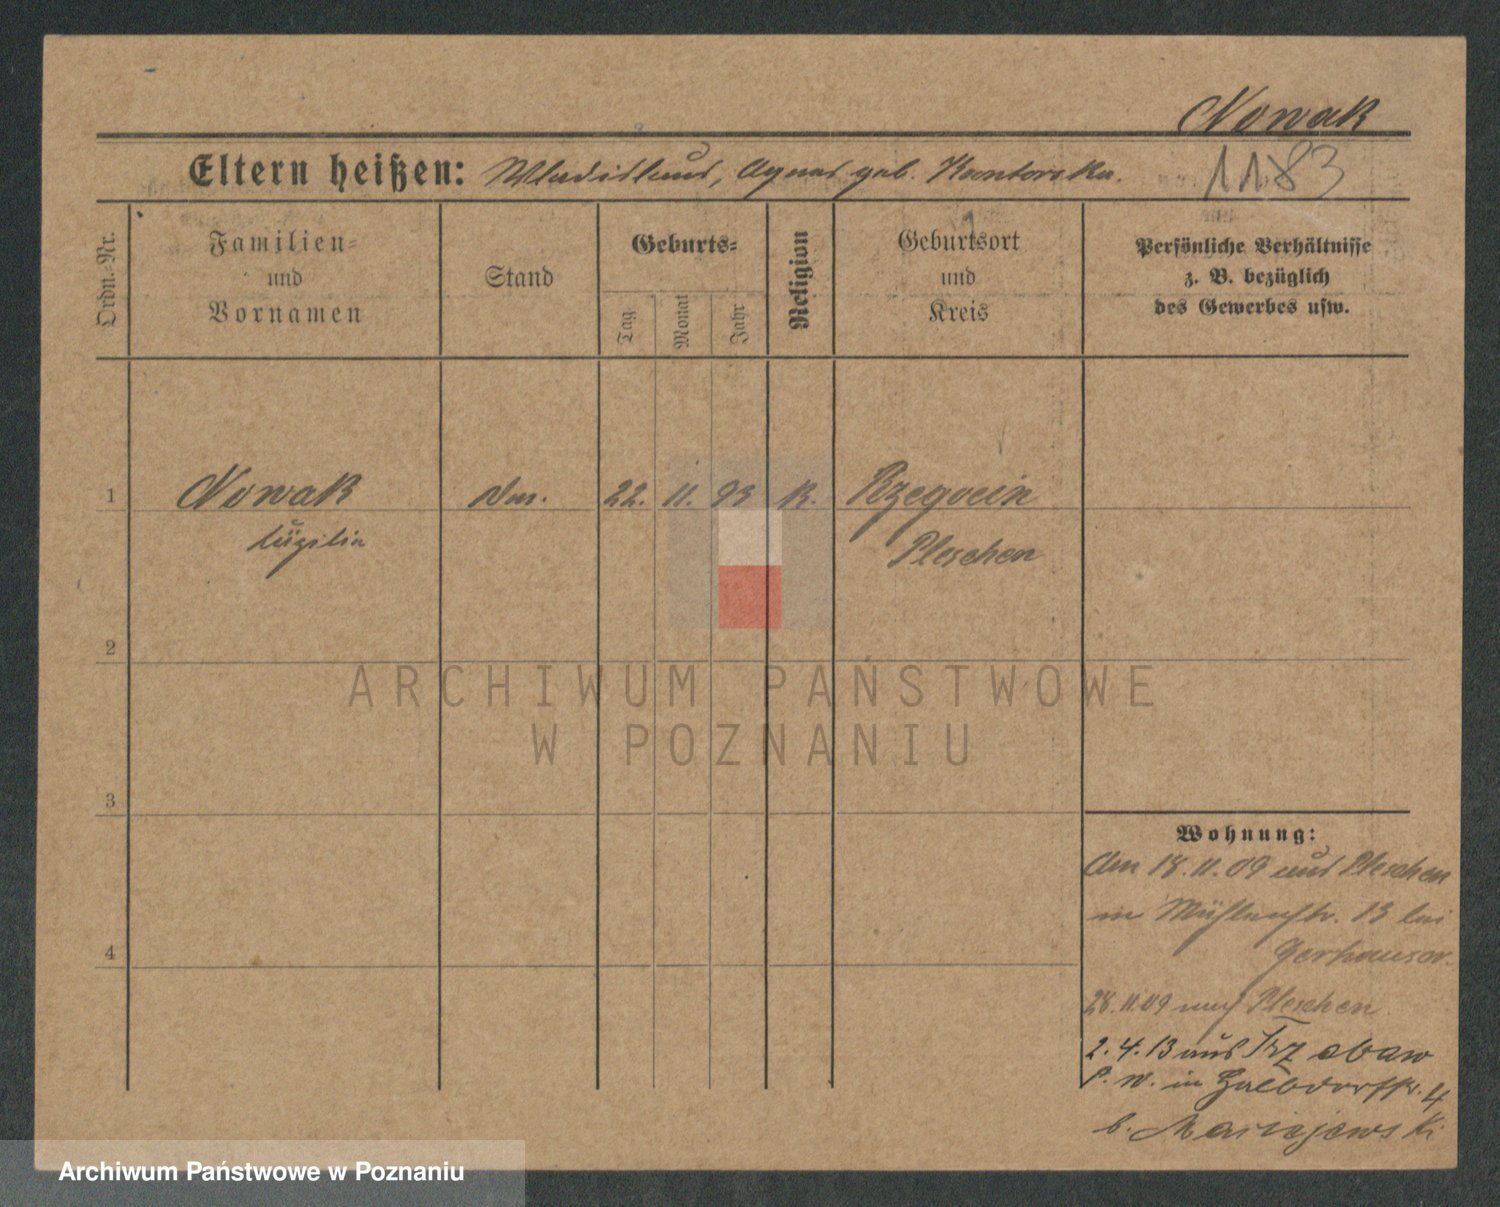 Nowak
Eltern heißen: Wladislaus, Agnes geb. Kantorska.
1183
Ordn.-Nr.
Familien-
und
Vornamen
Stand
Geburts-
Tag
Monat
Jahr
Religion
Geburtsort
und
Kreis
Persönliche Verhältnisse
z. B. bezüglich
des Gewerbes usw.
1
Nowak
22. 11. 93
K.
Rzegocin
Pleschen
2
3
4
Wohnung:
Am 18.11.09 aus Pleschen
in Mühlenstr. 13 bei
28.11.09 nach Pleschen
2.4.13 aus Trzebaw
P. W. in Halbdorfstr. 4
b. Maciejewski
ARCHIWUM PAŃSTWOWE
W POZNANIU
Archiwum Państwowe w Poznaniu